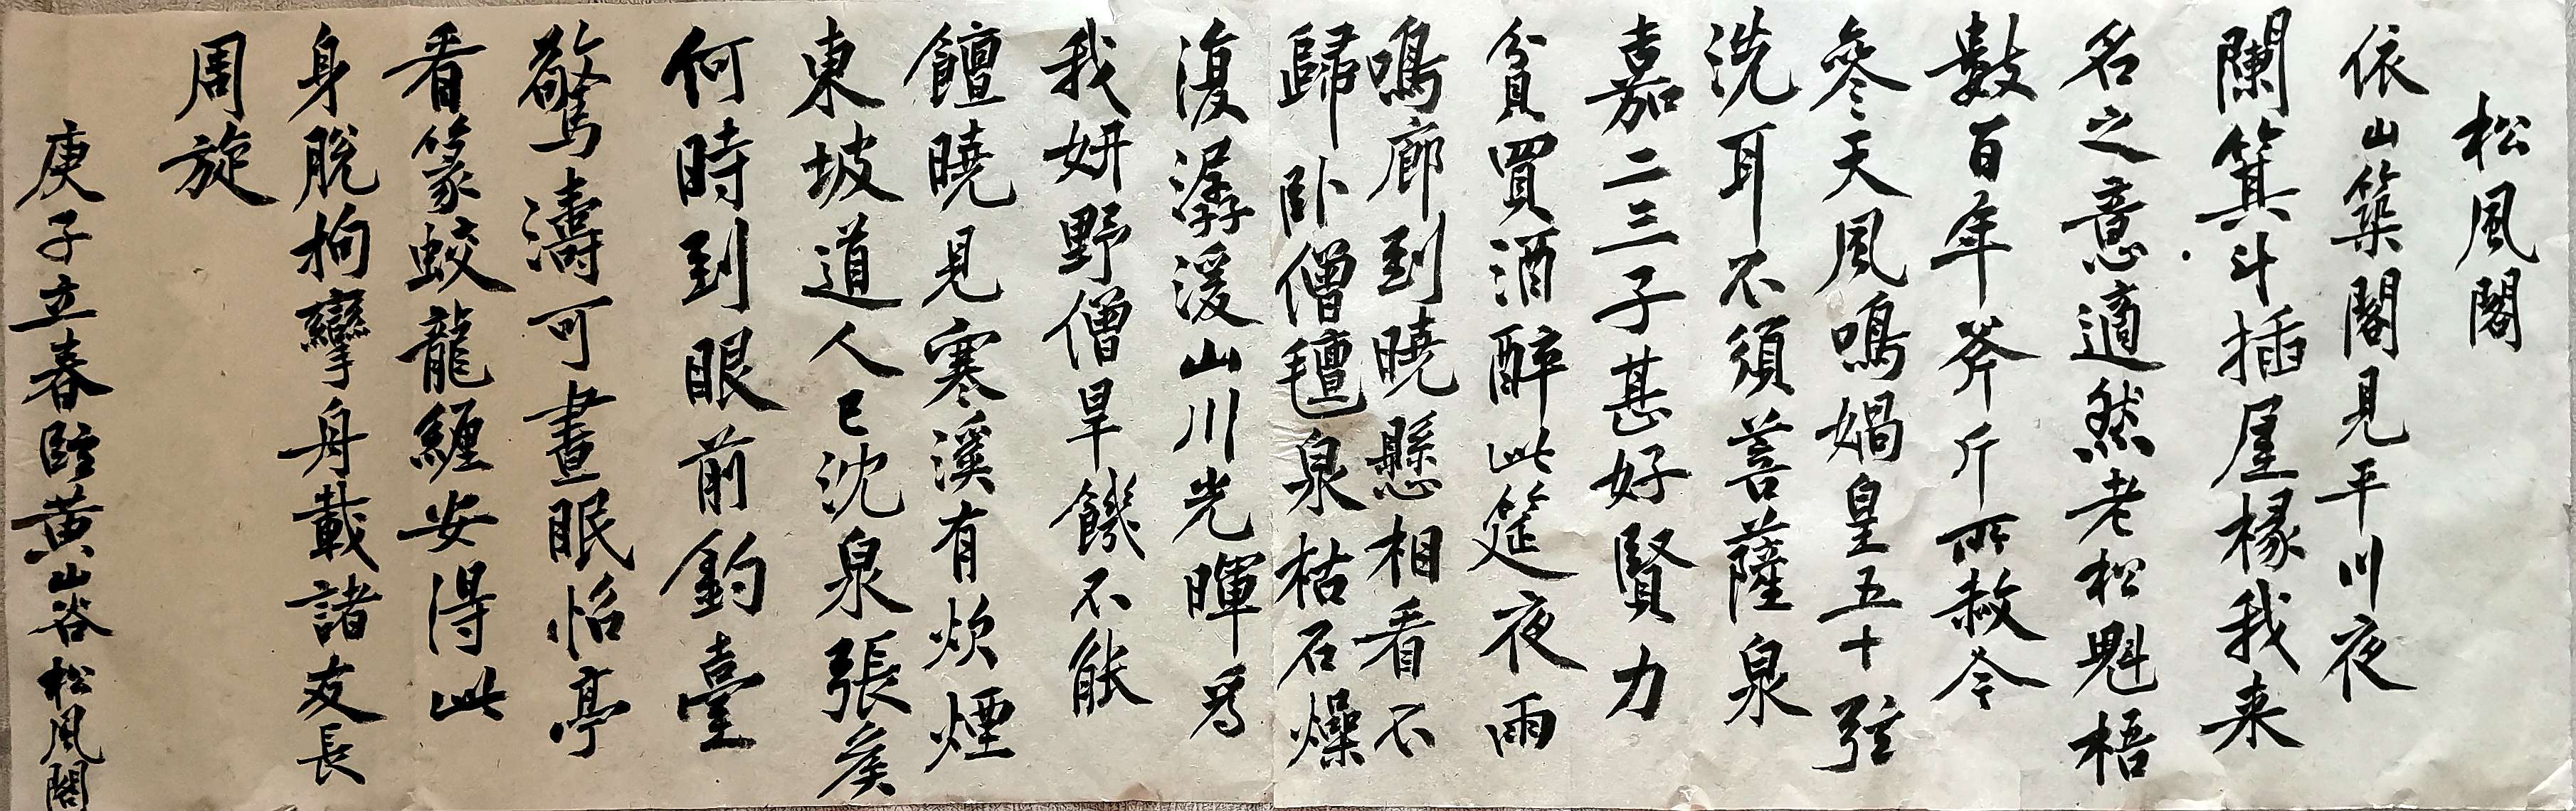 松風閣
依山築閣見平川夜
闌箕斗插屋椽我来
名之意適然老松魁梧
數百年斧斤所赦今
參天風鳴媧皇五十弦
洗耳不須菩薩泉
嘉二三子甚好賢力
貧買酒醉此筵夜雨
鳴廊到曉懸相看不
歸卧僧氊泉枯石燥
復潺湲山川光暉為
我妍野僧旱饑不能
饘曉見寒溪有炊煙
東坡道人已沈泉張矦
何時到眼前釣臺
驚濤可晝眠怡亭
看篆蛟龍纏安得此
身脫拘攣舟載諸友長
周旋
庚子立春臨黄山谷松風閣